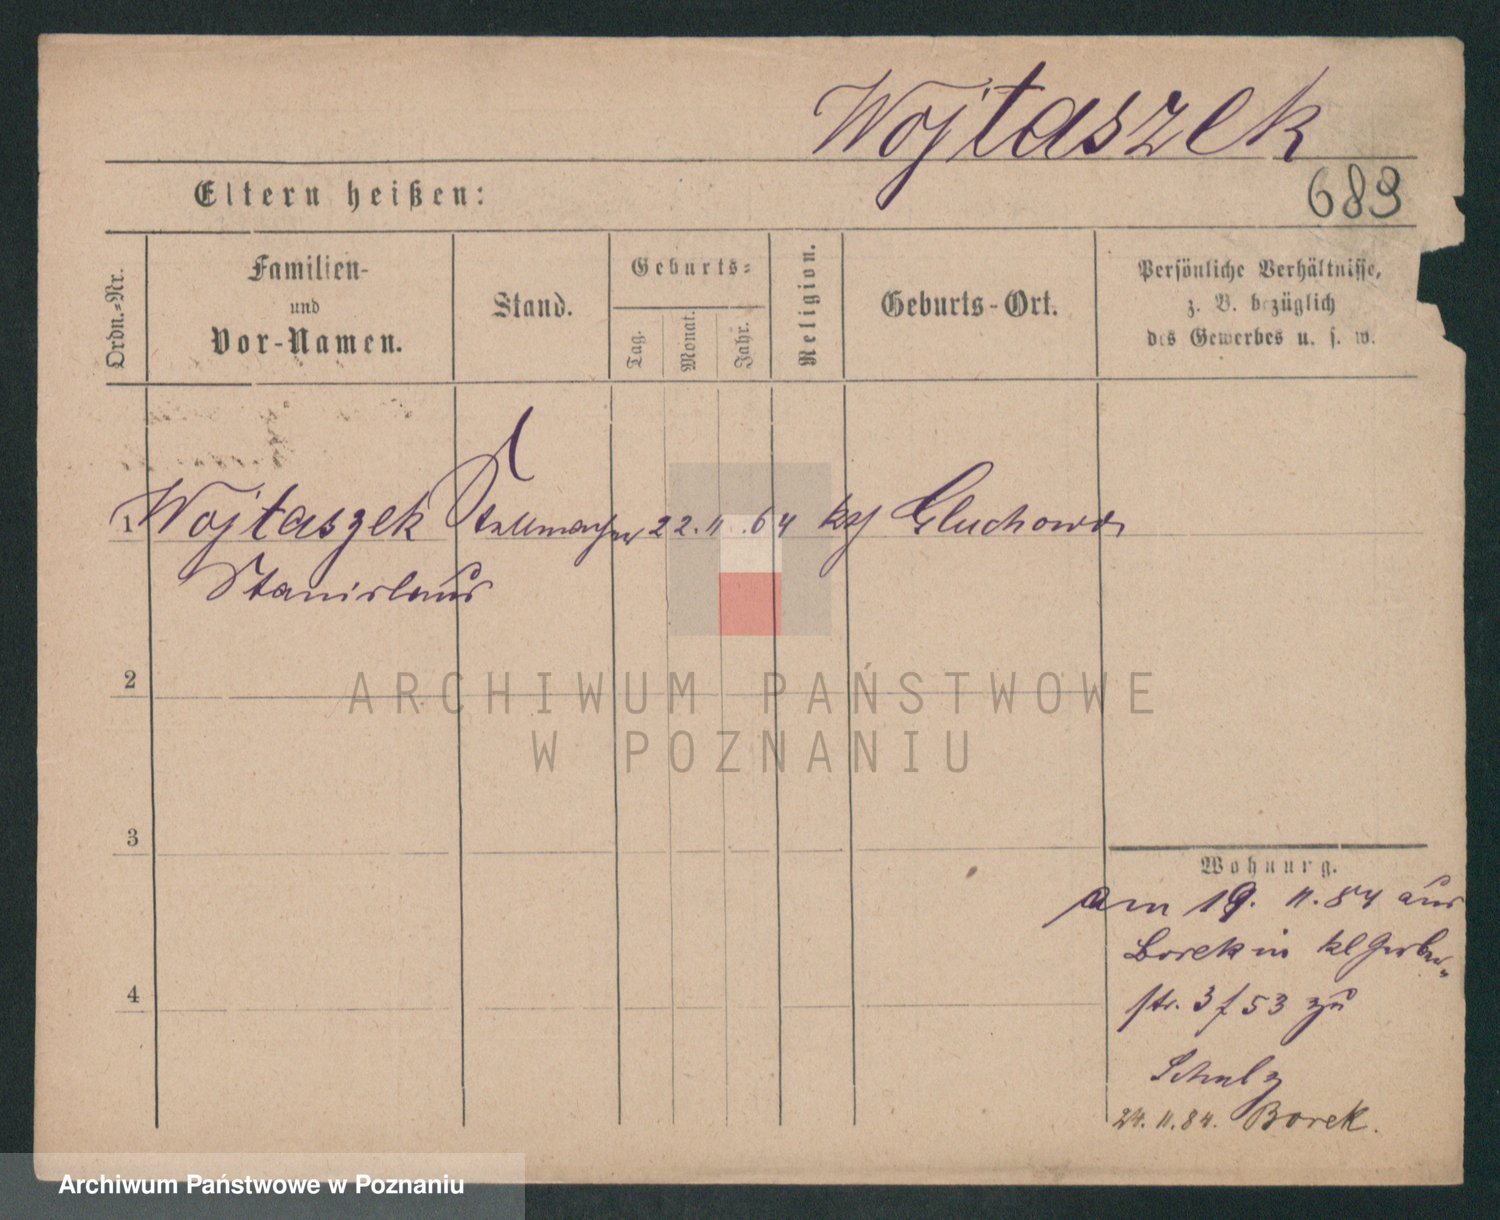 Wojtaszek
683
Eltern heißen:
Ordn.-Nr.
Familien-
und
Vor-Namen.
Stand.
Geburts-
Tag.
Monat.
Jahr.
Religion.
Geburts-Ort.
Persönliche Verhältnisse,
z. B. bezüglich
des Gewerbes u. s. w.
1 Wojtaszek Stellmacher 22. 11. 64 kth Gluchowo
Stanislaus
2
ARCHIWUM PAŃSTWOWE
W POZNANIU
3
Wohnung.
am 19. 11. 84 aus
Borek in kl Gerber-
str. 3 / 53 zu
Schulz
4
24. 11. 84. Borek.
Archiwum Państwowe w Poznaniu